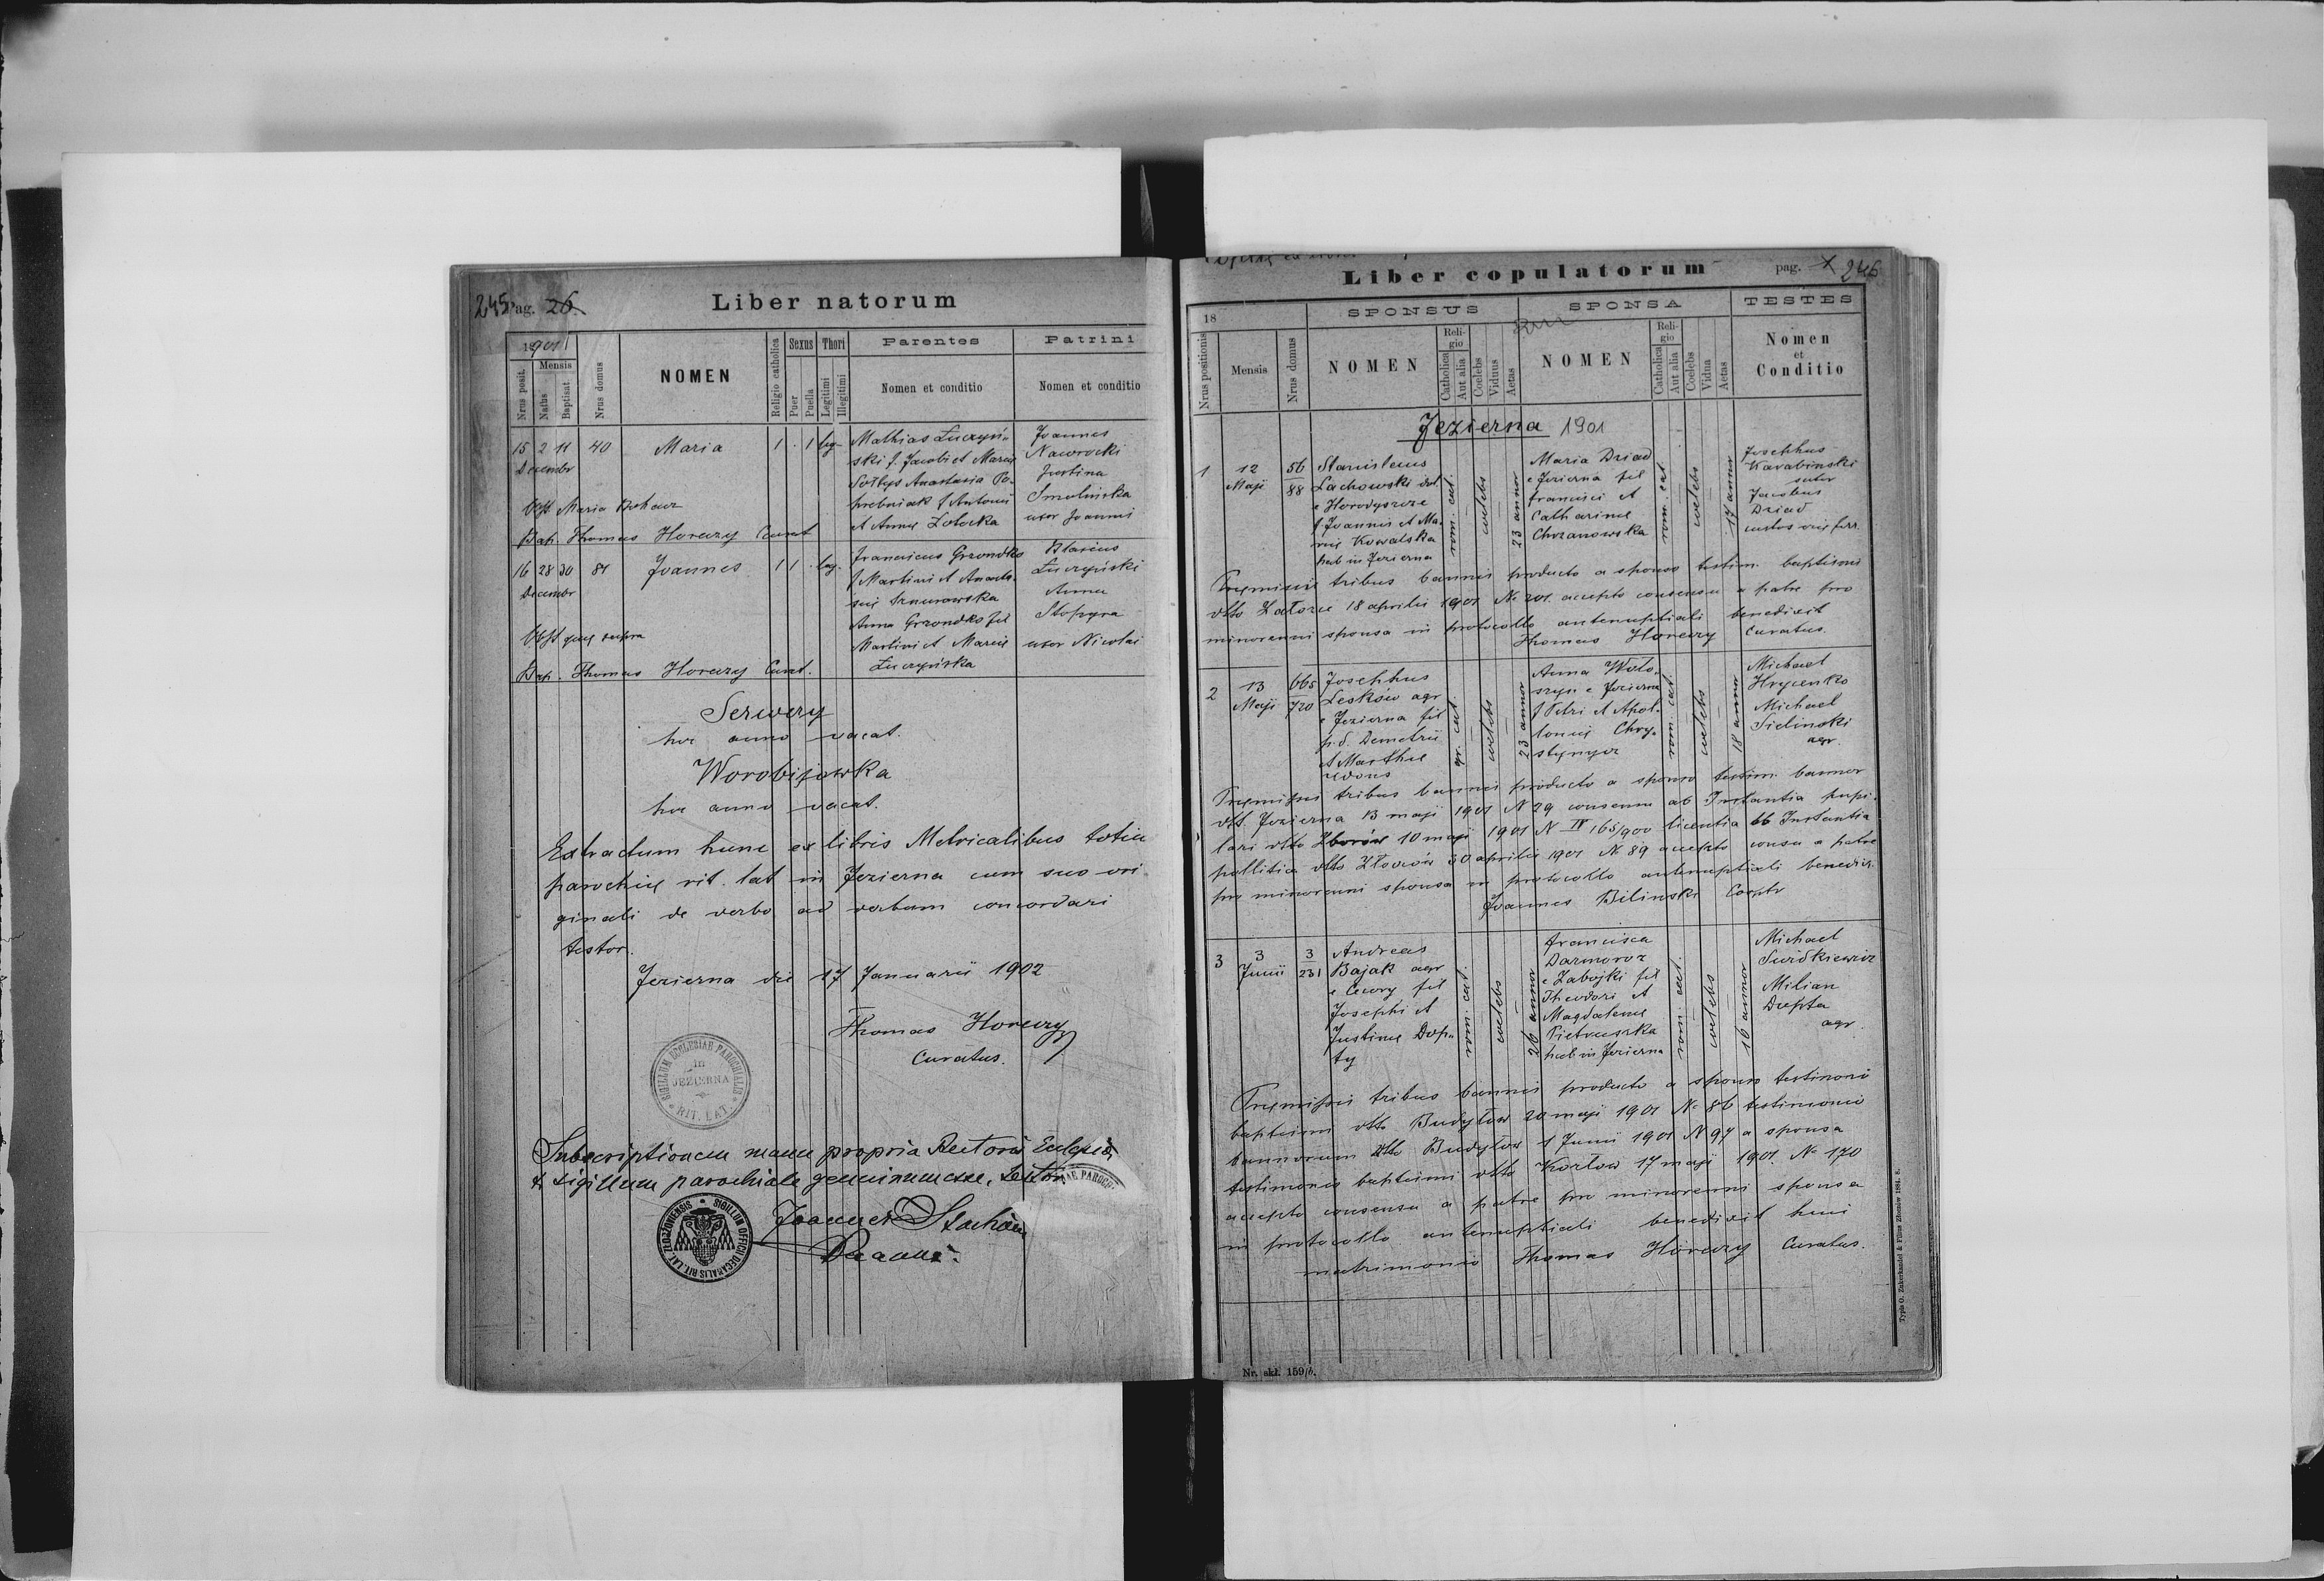 245 Pag. 26
Liber natorum
1901
Nrus posit.
Mensis
Natus
Baptisat.
Nrus domus
NOMEN
Religio catholica
Sexus
Puer
Puella
Thori
Legitimi
Illegitimi
Parentes
Nomen et conditio
Patrini
Nomen et conditio
15 2 11 40 Maria 1 . 1 leg
Decembr
Mathias Łuczyń-
ski f. Jacobi et Mariae
Sołtys Anastasia Po-
hrebniak f Antonii
et Annae Zołocka
Joannes
Nawrocki
Justina
Smolinska
uxor Joannis
Obst Maria
Bap. Thomas Horeczy Curat
16 28 30 81 Joannes 1 1 . leg.
Decembr
Franciscus Grzondko
f Martini et Anasta-
siae
Anna Grzondko fil
Martini et Mariae
Łuczyńska
Blasius
Łuczyński
Anna
Stopyra
uxor Nicolai
Obst quae supra
Bap. Thomas Horeczy Curat.
Serwery
hoc anno vacat.
Worobijowka
hoc anno vacat.
Extractum hunc ex libris Metricalibus totiu
parochiae rit. lat in Jezierna cum suo ori
ginali de verbo ad verbum concordari
testor.
Jezierna die 17 Januarii 1902
Thomas Horeczy
Curatus.
SIGILLUM ECCLESIAE PAROCHIALIS
in
JEZIERNA
RIT. LAT.
Subscriptionem manu propria Rectoris Ecclesiae
& sigillum parochiale genuinum esse, testor
AE PAROCH
SIGILLUM OFFICII DECANALIS RIT. LAT. ZŁOZOWENSIS
Joannes
Decanus.
Liber copulatorum
pag. 1 246
18
SPONSUS
SPONSA
TESTES
Nrus positionis
Mensis
Nrus domus
NOMEN
Religio
Catholica
Aut alia
Coelebs
Viduus
Aetas
NOMEN
Religio
Catholica
Aut alia
Coelebs
Vidua
Aetas
Nomen
et
Conditio
Jezierna 1901
1 12 Maji 56 88
Stanislaus
Lachowski
e Horodyszcze
f Joannis et Ma-
riae Kowalska
hab in Jezierna
rom. cat.
coelebs
23 annor
Maria Dziad
e Jezierna fil
Francisci et
Catharinae
Chrzanowska
rom. cat
coelebs
17 annor
Josephus
Karabinski
sutor
Jacobus
Dziad
custos viae ferr.
Praemissis tribus bannis producto a sponso testim. baptismi
dtto Załozce 18 aprilis 1901 No 201. accepto consensu a patre pro
minorenni sponsa in protocollo antenuptiali benedixit
Thomas Horeczy Curatus.
2 13 Maji 665 720
Josephus
Leskow agr
e Jezierna fil
p.d. Demetrii
et Marthae
gr. cat.
coelebs
23 annor
Anna Woło-
szyn e Jezierna
f Petri et Apol-
loniae Chry-
stynycz
rom. cat.
coelebs
18 annor
Michael
Hrycenko
Michael
Sielinski
agr.
Praemissis tribus bannis producto a sponso testim. bannor
dtt. Jezierna 13 maji 1901 N 29 consensu ab Instantia pupi-
lari dtto Zborów 10 maji 1901 N IV 165/900 licentia ab Instantia
politica dtto Złoczów 30 aprilis 1901 N 89 accepto consu a patre
pro minorenni sponsa in protocollo antenuptiali benedixi.
Joannes Bilinski Cooptr
3 3 Junii 3 231
Andreas
Bajak agr
e Cecory fil
Josephi et
Justinae Dup-
ty
rom. cat.
coelebs
26 annor
Francisca
Darmoroz
e Zabojki fil
Theodori et
Magdalenae
Pietruszka
hab in Jezierna
rom. cat.
coelebs
16 annor
Michael
Milian
Dupta
agr.
Praemissis tribus bannis producto a sponso testimonio
baptismi dtto Budyłow 20 maji 1901 N 86 testimonio
bannorum dtto Budyłow 1 Junii 1901 N 97 a sponsa
testimonio baptismi dtto Kozłow 17 maji 1901. No 170
accepto consensu a patre pro minorenni sponsa
in protocollo antenuptiali benedixit huic
matrimonio Thomas Horeczy Curatus.
Nr. skł. 159/b.
Typis O. Zukerkandel & Filius Złoczów 1884. 8.